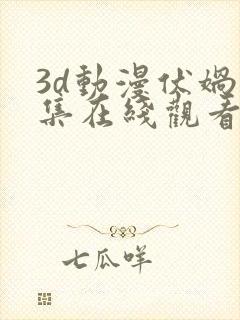 3d動漫伏媧
集在綫觀看
七瓜咩